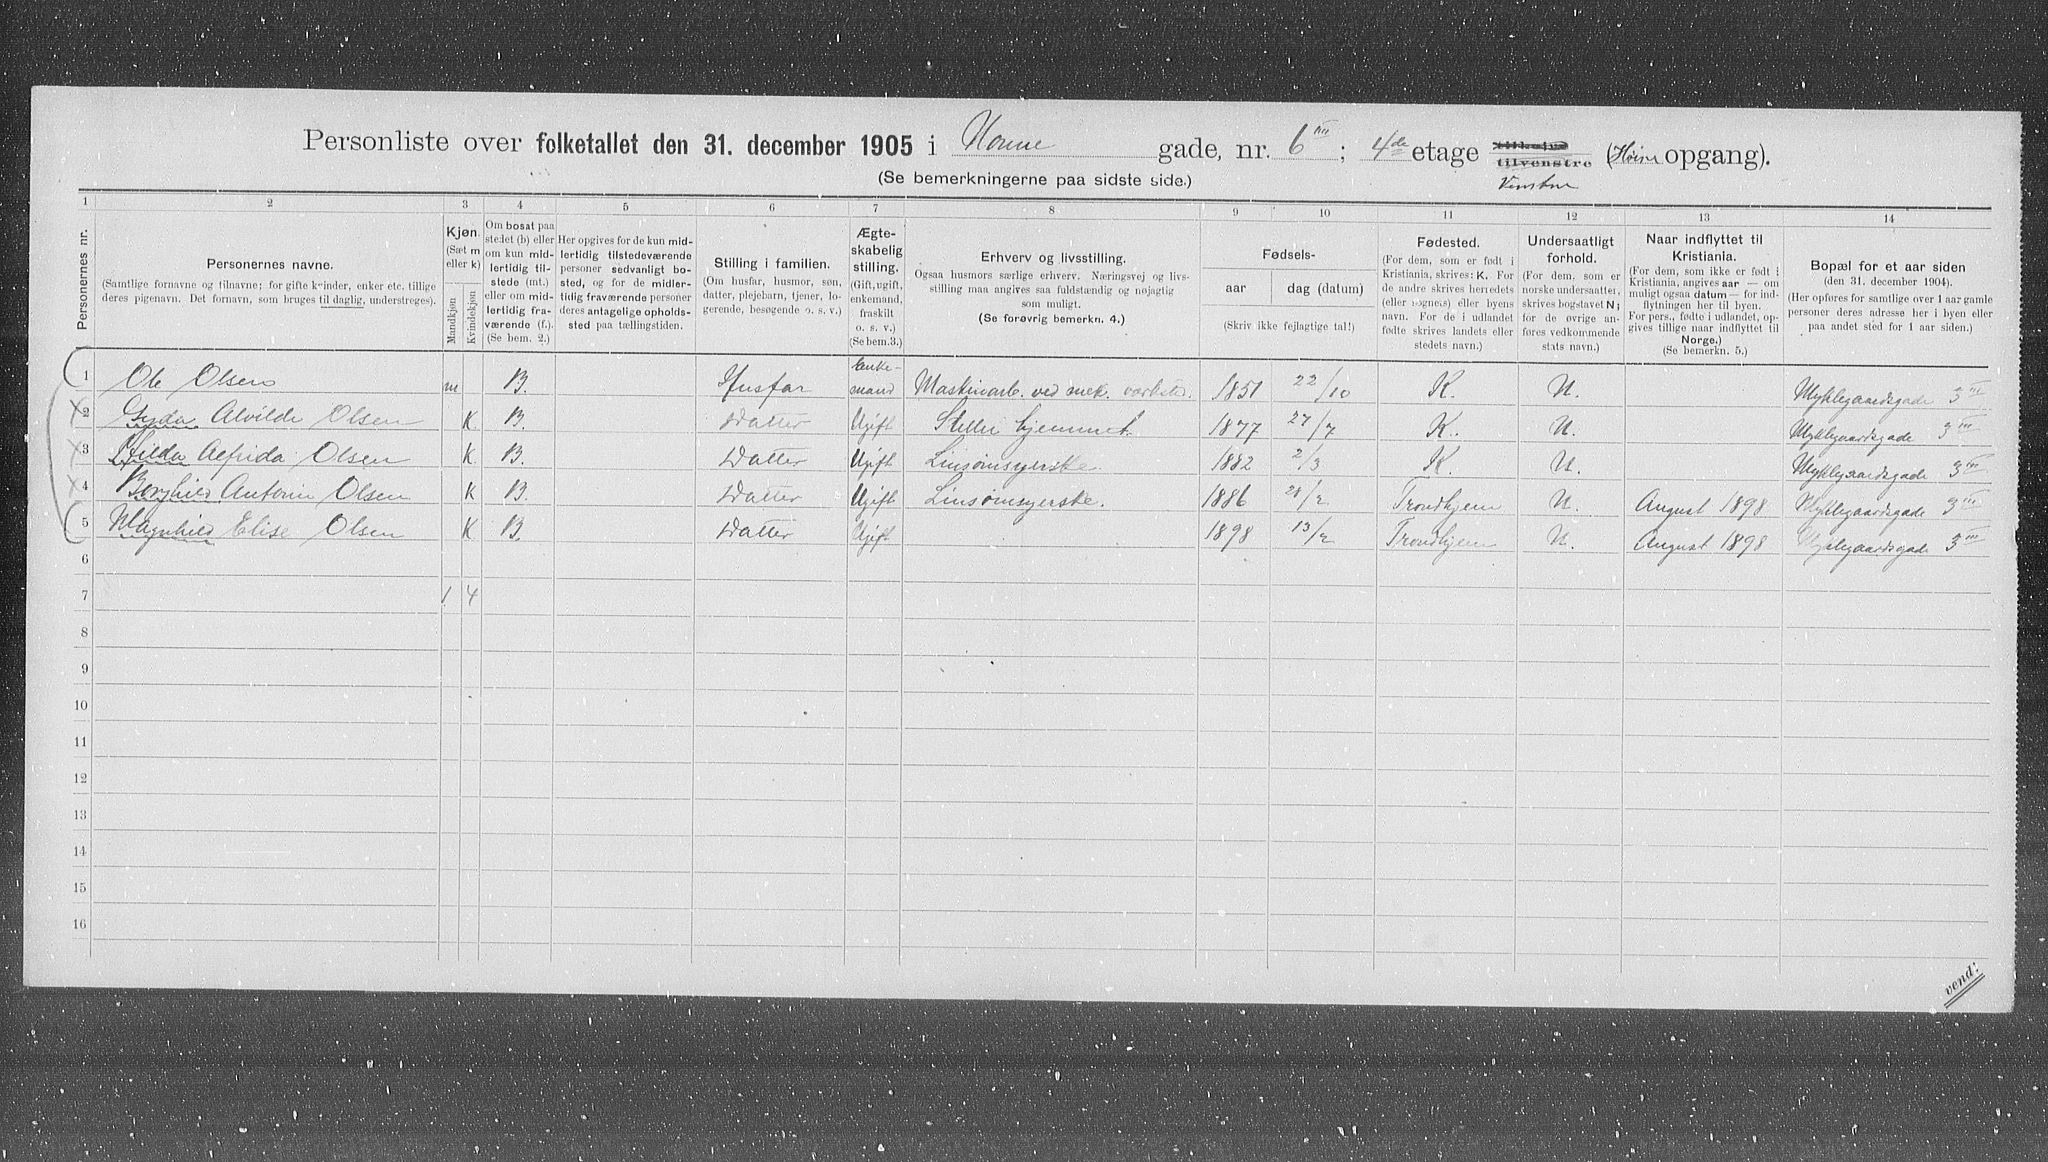 Personliste over folketallet den 31. december 1905 i Nonne gade, nr. 6 III ; 4de etage tilhøjre tilvenstre Venstre (Høire opgang).
(Se bemerkningerne paa sidste side.)
1 2 3 4 5 6 7 8 9 10 11 12 13 14
Personernes nr.
Personernes navne.
(Samtlige fornavne og tilnavne; for gifte kvinder, enker etc. tillige
deres pigenavn. Det fornavn, som bruges til daglig, understreges).
Kjøn.
(Sæt m
eller k)
Mandkjøn
Kvindekjøn
Om bosat paa
stedet (b) eller
om kun mid-
lertidig til-
stede (mt.)
eller om mid-
lertidig fra-
værende (f.).
(Se bem. 2.)
Her opgives for de kun mid-
lertidig tilstedeværende
personer sedvanligt bo-
sted, og for de midler-
tidig fraværende personer
deres antagelige opholds-
sted paa tællingstiden.
Stilling i familien.
(Om husfar, husmor, søn,
datter, plejebarn, tjener, lo-
gerende, besøgende o. s. v.)
Ægte-
skabelig
stilling.
(Gift, ugift,
enkemand,
fraskilt
o. s. v.)
(Se bem.3.)
Erhverv og livsstilling.
Ogsaa husmors særlige erhverv. Næringsvej og livs-
stilling maa angives saa fuldstændig og nøjagtig
som muligt.
(Se forøvrig bemerkn. 4.)
Fødsels-
aar
dag (datum)
(Skriv ikke fejlagtige tal!)
Fødested.
(For dem, som er født i
Kristiania, skrives: K. For
de andre skrives herredets
(eller sognets) eller byens
navn. For de i udlandet
fødte skrives landets eller
stedets navn.)
Undersaatligt
forhold.
(For dem, som er
norske undersaatter,
skrives bogstavet N;
for de øvrige an-
føres vedkommende
stats navn.)
Naar indflyttet til
Kristiania.
(For dem, som ikke er født i
Kristiania, angives aar — om
muligt ogsaa datum — for ind-
flytningen her til byen.
For pers., fødte i udlandet, op-
gives tillige naar indflyttet til
Norge.)
(Se bemerkn. 5.)
Bopæl for et aar siden
(den 31. december 1904).
(Her opføres for samtlige over 1 aar gamle
personer deres adresse her i byen eller
paa andet sted for 1 aar siden.)
1 Ole Olsen m B. Husfar Enke-mand Maskinarb. ved mek. værksted. 1851 22/10 K. N. Myklegaardsgade 3 III
2 Gyda Alvilde Olsen K. B. Datter Ugift Steller hjemmet. 1877 27/7 K. N. Myklegaardsgade 3 III
3 Hilda Alfrida Olsen K B. Datter Ugift Linsømsyerske. 1882 2/3 K. N. Myklegaardsgade 3 III
4 Borghild Antorin Olsen K B. Datter Ugift Linsømsyerske. 1886 28/2 Trondhjem N. August 1898 Myklegaardsgade 3 III
5 Magnhild Elise Olsen K B. Datter Ugift 1898 13/2 Trondhjem N. August 1898 Myklegaardsgade 3 III
6
7 1 4
8
9
10
11
12
13
14
15
16
vend!